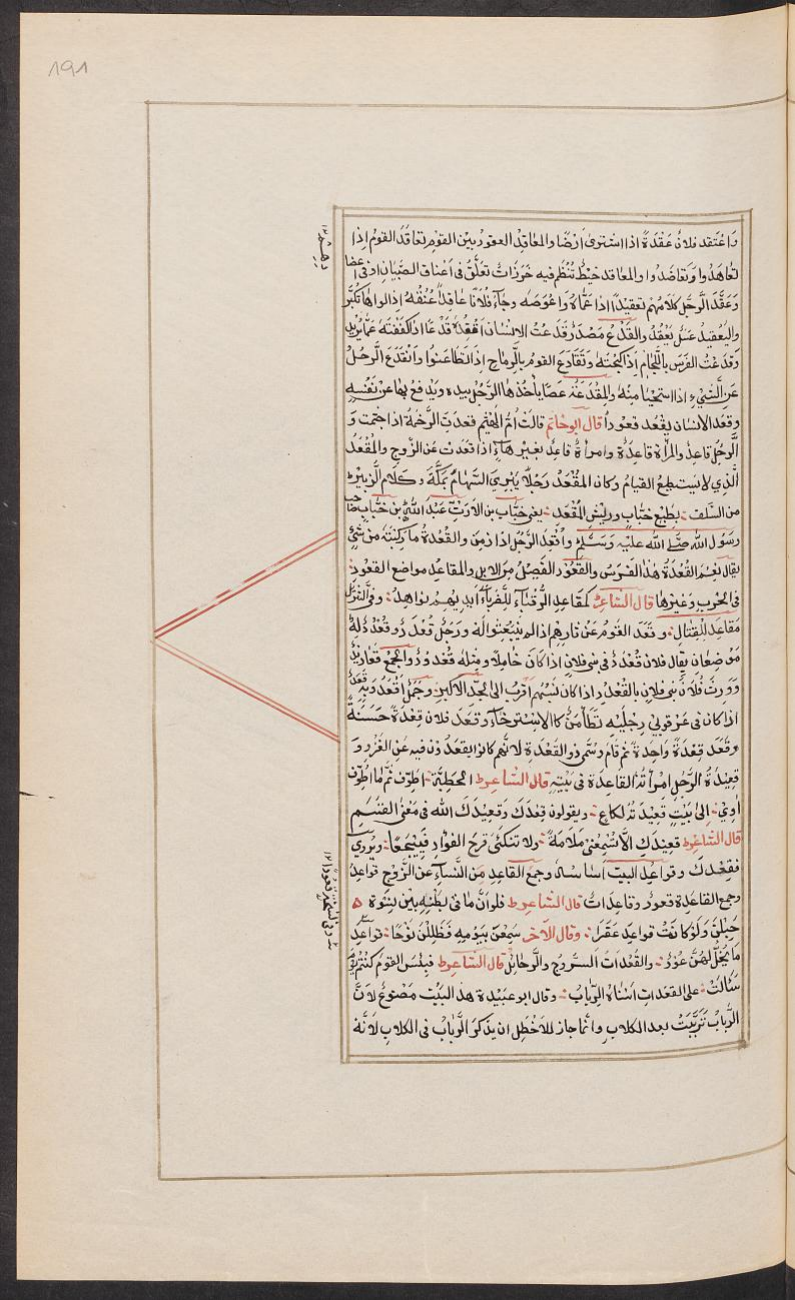 191
وَاعْتَقد فلانٌ عَقْدَةً اذا اشترى أرْضًا والمعاقِدُ العقود بين القوم تعاقَدَ القومُ اِذا
تعاهَدُوا وتعاضَدُوا والمعاقد خيْطٌ تُنْظَم فيه خَرَزاتٌ تعلَّق فى اَعْناق الصبْيان او فى اعضا
وَعَقَّدَ الرّجُل كلامهم تعقيدًا اذا عمّاهُ وَاعْوَصَه وجاءَ فلانًا عاقِدًا عُنُقَهُ اِذا لواها تكبّرا
واليَعْقِيدُ عسَلٌ يُعْقَدُ والقَدْعُ مَصْدَرُ قَدَعْتُ الانسان اَقْدَعُهُ قَدْعًا اذا كَفَفْتَهُ عمّا يُريد
وَقدعْتُ الفَرَس باللّجام اِذا كبَحْتَهُ وَتَقادَعَ القومُ بالرّماح اِذا تطاعَنوا وَانْقدَعَ الرّجلُ
عَنِ الشَّيْءِ اذا استحيَا منهُ والمِقْدَعَةُ عصًا ياخُذها الرَّجُل بيده ويدفع بها عن نَفْسِه
وقعَد الانسان يقعُد قعودًا قال ابو حاتم قالت اُمّ الهيثم قعدَتِ الرَّخمةُ اذا جثمت وَ
الرّجُل قاعِدٌ والمرأة قاعِدَةٌ وامرأةٌ قاعِدٌ بغير هاءٍ اذا قعدت عن الزّوج والمُقْعَدُ
الّذي لا يستطيع القيام وكان المُقْعَدُ رَجُلًا يَبْرِي السّهامَ بمكّةَ وكلام الزبير
من السّلف بطبع خبّاب وريش المُقْعَد يعنى خبّاب بن الارَتّ عَبْدُ اللهِ بن خبّاب صاحب
رسُول الله صلّى الله عليه وسَلَّم واُقعِدَ الرّجُل اذا زمِنَ والقُعْدةُ ما ركبْتَهُ من شيْءٍ
يقال نِعْمَ القُعْدَةُ هٰذا الفَرَسُ والقَعُوْد الفَصِيْلُ من الابل والمقاعِد مواضع القعود
فى الحرب وغيرها قال الشاعر كمقاعِدِ الرُّقَباءِ للضُّرَباءِ ايديهم نواهد وفى التنزيل
مَقاعِدَ للقتال وقعَد القوْم عَن ثارهم اذا لم ينبعثوا له ورَجُلٌ قُعْدَدٌ وقُعْدُدٌ لهُ
مَوضعان يقال فلان قُعْدُدٌ فى بنى فلان اذا كان خاملًا ومثله قُعْدودٌ والجمع قعاديدُ
وَوَرِثَ فُلان بنى فلانٍ بالقُعْدُد اذا كان نسَبُهم اقرب الى الجدّ الاكبر وجَمَلٌ اَقْعَدُ وبه قعَدٌ
اذا كان فى عرْقوبَيْ رِجْلَيْهِ تطَأْمُنٌ كالاسْتِرخاءِ وقعَد فلان قِعْدةً حَسَنةً
وقعَد قعْدَةً وَاحِدةً ثم قام وسُمّى ذو القَعْدة لانّهم كانوا يقعُدُوْن فيه عن الغزو وَ
قعِيْدَةُ الرّجُل امْرأتُهُ القاعِدَة فى بَيْتِهِ قال الشاعر الحطيئة اُطوّف ثمّ ما اُطَوّف
آوِيْ اِلىٰ بَيْتٍ قعيْدَتُهُ لكاعِ ويقولون قِعْدَك وقعيْدَكَ الله فى مَعنى القسَم
قال الشاعر قعيْدَكِ الّا تُسْمِعينى مَلامةً ولا تنكئى قرحَ الفؤاد فيَيْجَعا ويُروىٰ
فقِعْدَك وقواعِدُ البيت اساسُهُ وجمع القاعِدِ مِن النّساءِ عن الزّوج قواعِدُ
وجمع القاعِدة قعودٌ وقاعِداتٌ قال الشاعر فلو اَنّ ما فى بطْنِهِ بين نِسْوةٍ
حَبِلْنَ وَلَوْ كانَتْ قواعِدَ عُقَّرا وقال الآخر سَمِعْنَ بيَوْمِهِ فَظَلِلْنَ نَوْحًا قواعِدَ
مَا يُحَلُّ لهُنّ عُوْدُ والقُعْداتُ السّروج والرّحائل قال الشاعر فبئس القوم كنتم يوْمَ
سَالَتْ على القعَداتِ اَسْتاهُ الرّباب وقال ابو عبيدة هذا البَيْت مَصْنوعٌ لانّ
الرّبابُ تَرَبَّبَتْ بعد الكلاب وانّما جاز للاَخْطَل ان يذكرَ الرّبابَ فى الكلاب لانّهُ